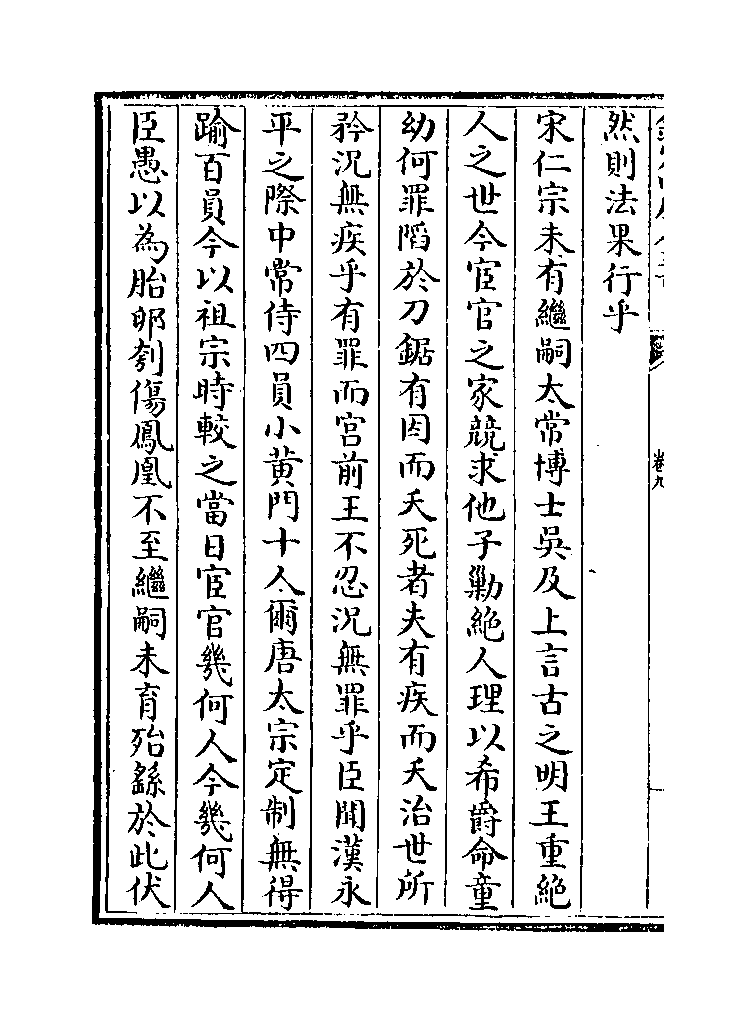 然則法果行乎
宋仁宗未有繼嗣太常博士吳及上言古之明王重絶
人之世今宦官之家競求他子勦絶人理以希爵命童
幼何罪陷於刀鋸有因而夭死者夫有疾而夭治世所
矜況無疾乎有罪而宫前王不忍況無罪乎臣聞漢永
平之際中常侍四員小黄門十人爾唐太宗定制無得
踰百員今以祖宗時較之當日宦官幾何人今幾何人
臣愚以為胎卵刳傷鳳凰不至繼嗣未育殆繇於此伏
卷九